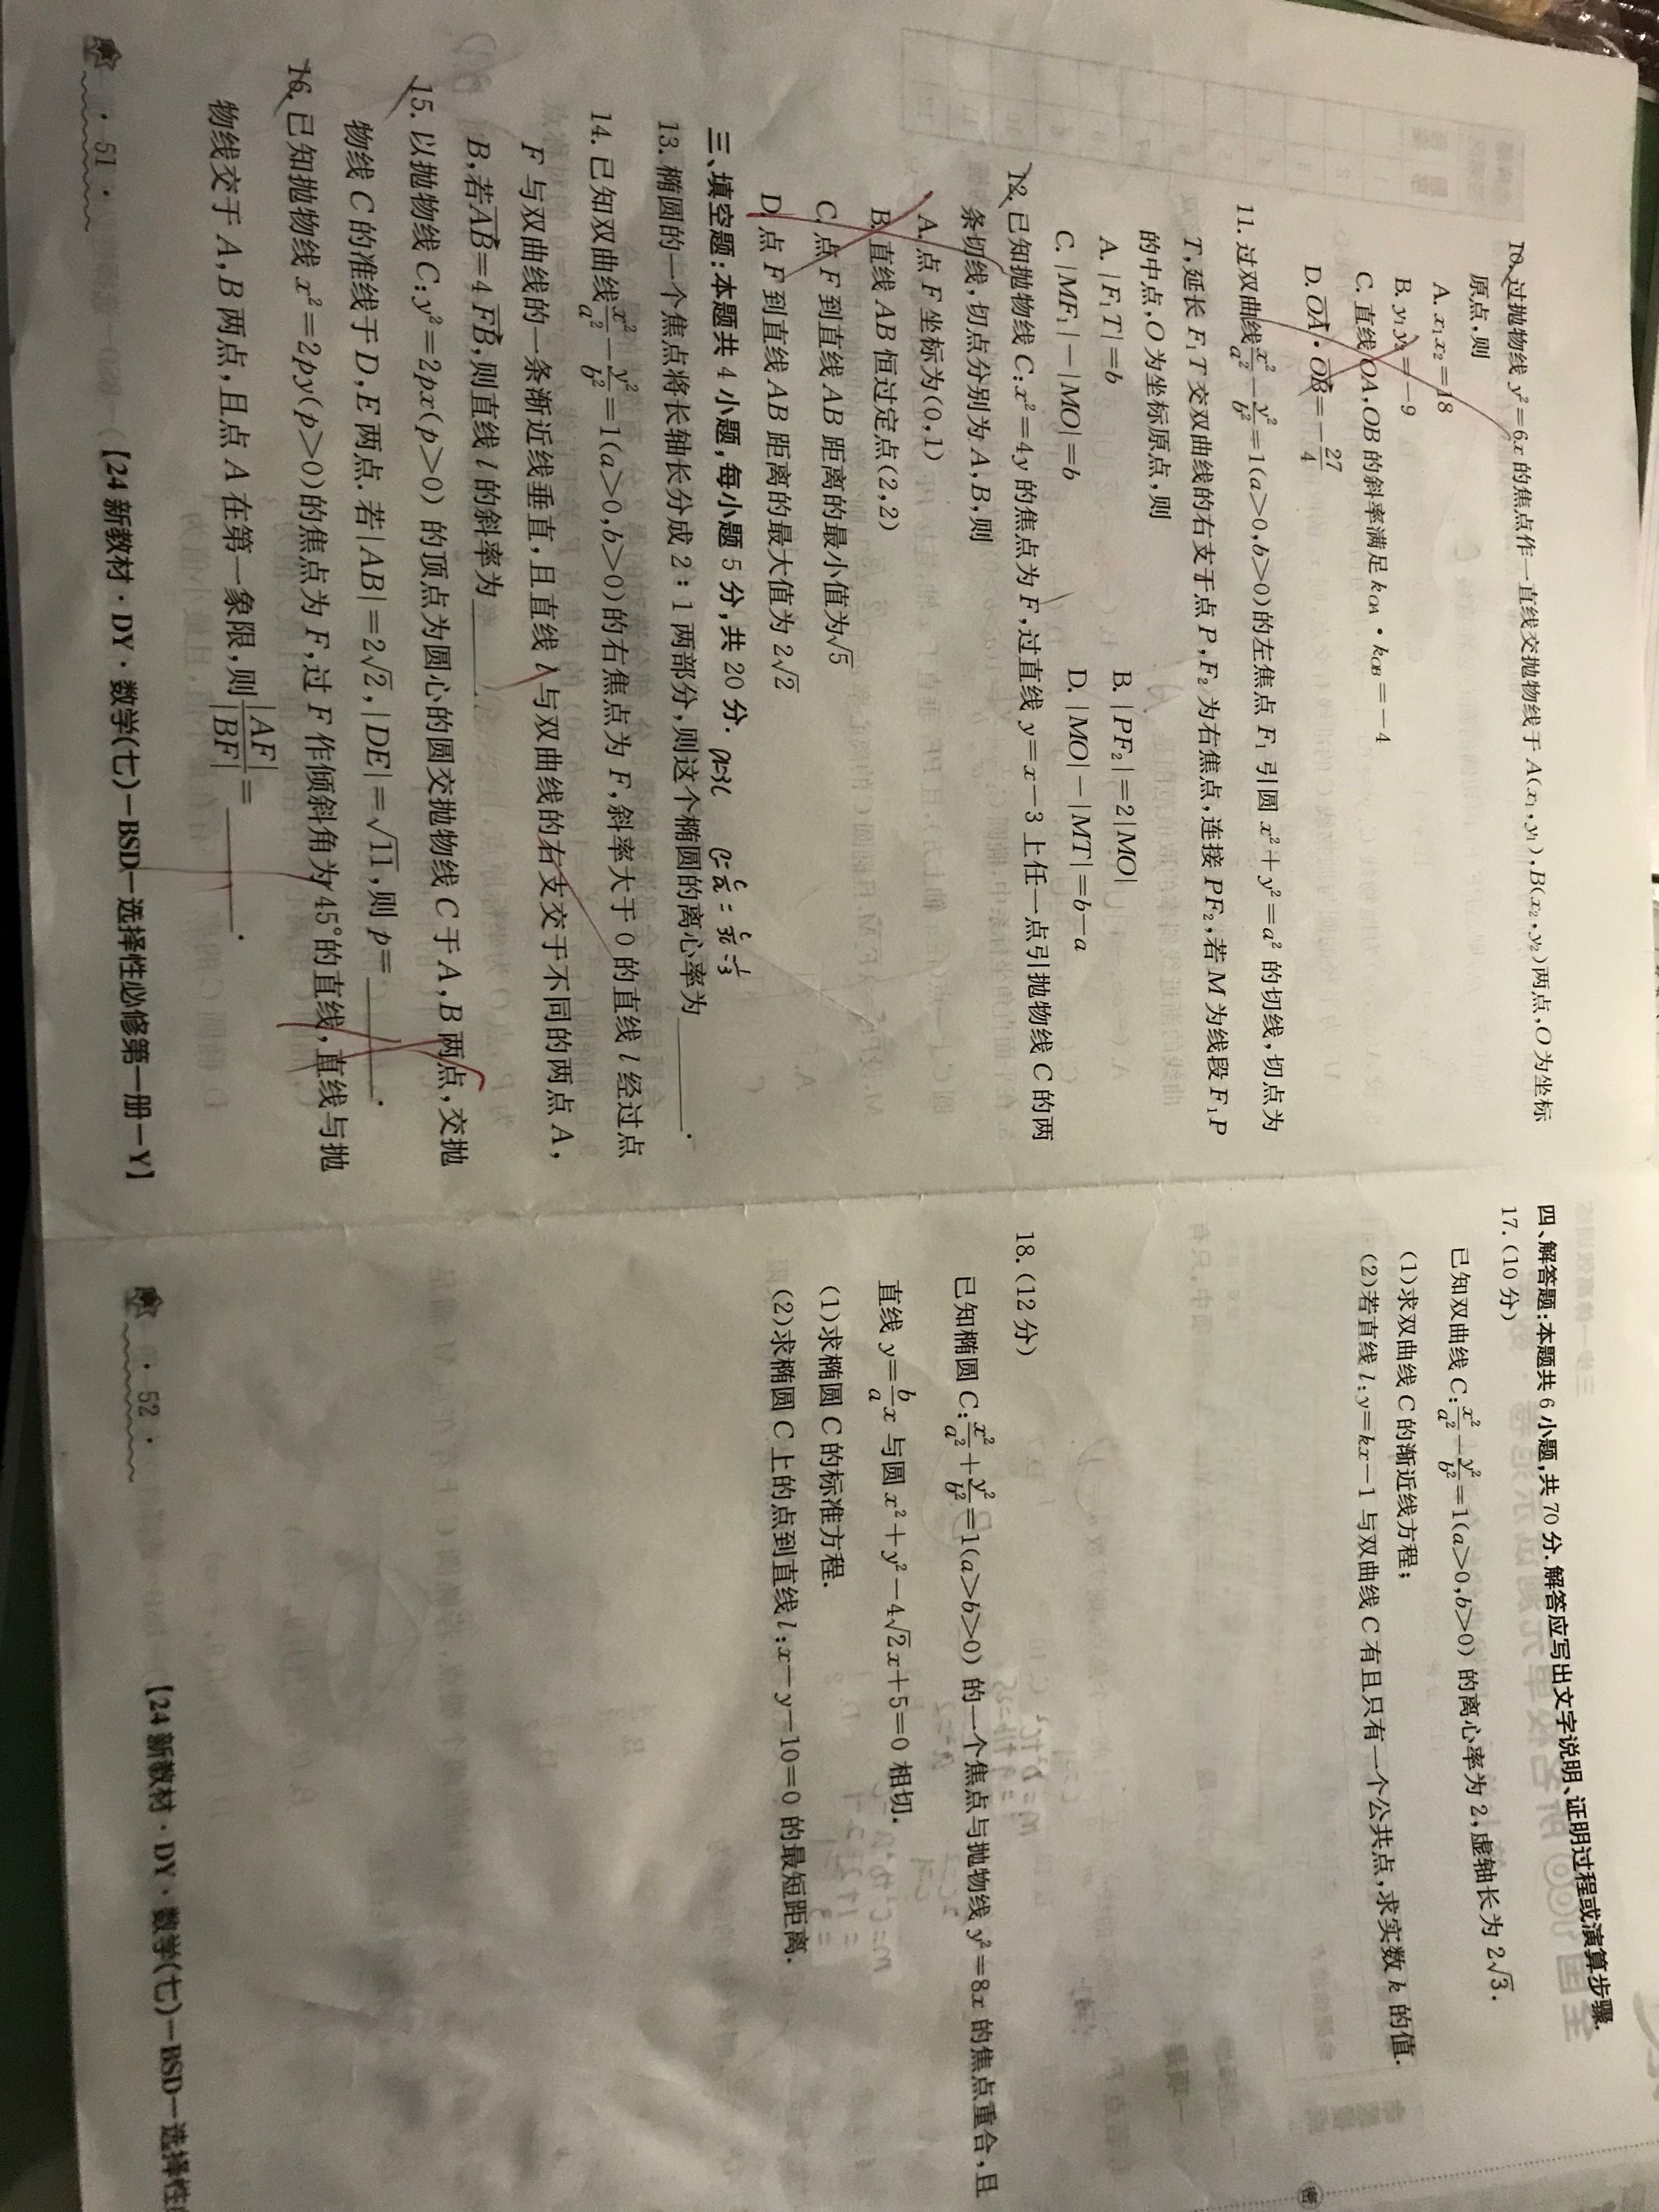 10. 过抛物线 y²=6x 的焦点作一直线交抛物线于 A(x₁,y₁),B(x₂,y₂)两点,O为坐标
原点,则
A. x₁x₂=18
B. y₁y₂=-9
C. 直线OA,OB 的斜率满足 k_OA·k_OB=-4
D. OA·OB=-27/4
11. 过双曲线x²/a²-y²/b²=1(a>0,b>0)的左焦点 F₁ 引圆 x²+y²=a² 的切线,切点为
T,延长 F₁T 交双曲线的右支于点 P,F₂ 为右焦点,连接 PF₂,若 M 为线段 F₁P
的中点,O 为坐标原点,则
A. |F₁T|=b B. |PF₂|=2|MO|
C. |MF₁|-|MO|=b D. |MO|-|MT|=b-a
12. 已知抛物线 C:x²=4y 的焦点为 F,过直线 y=x-3 上任一点引抛物线 C 的两
条切线,切点分别为 A,B,则
A. 点 F 坐标为(0,1)
B. 直线 AB 恒过定点(2,2)
C. 点 F 到直线 AB 距离的最小值为√5
D. 点 F 到直线 AB 距离的最大值为 2√2
三、填空题:本题共 4 小题,每小题 5 分,共 20 分.
a=3c e=c/a=c/3c=1/3
13. 椭圆的一个焦点将长轴长分成 2:1 两部分,则这个椭圆的离心率为______.
14. 已知双曲线x²/a²-y²/b²=1(a>0,b>0)的右焦点为 F,斜率大于 0 的直线 l 经过点
F 与双曲线的一条渐近线垂直,且直线 l 与双曲线的右支交于不同的两点 A,
B,若AB=4FB,则直线 l 的斜率为______.
15. 以抛物线 C:y²=2px(p>0) 的顶点为圆心的圆交抛物线 C 于 A,B 两点,交抛
物线 C 的准线于 D,E 两点.若|AB|=2√2,|DE|=√11,则 p=______.
16. 已知抛物线 x²=2py(p>0)的焦点为 F,过 F 作倾斜角为 45°的直线,直线与抛
物线交于 A,B 两点,且点 A 在第一象限,则|AF|/|BF|=______.
· 51 ·
【24 新教材·DY·数学(七)-BSD-选择性必修第一册-Y】
四、解答题:本题共 6 小题,共 70 分.解答应写出文字说明、证明过程或演算步骤.
17.(10 分)
已知双曲线 C:x²/a²-y²/b²=1(a>0,b>0) 的离心率为 2,虚轴长为 2√3.
(1)求双曲线 C 的渐近线方程;
(2)若直线 l:y=kx-1 与双曲线 C 有且只有一个公共点,求实数 k 的值.
18.(12 分)
已知椭圆 C:x²/a²+y²/b²=1(a>b>0) 的一个焦点与抛物线 y²=8x 的焦点重合,且
直线 y=b/a x 与圆 x²+y²-4√2x+5=0 相切.
(1)求椭圆 C 的标准方程.
(2)求椭圆 C 上的点到直线 l:x-y-10=0 的最短距离.
· 52 ·
【24 新教材·DY·数学(七)-BSD-选择性
密